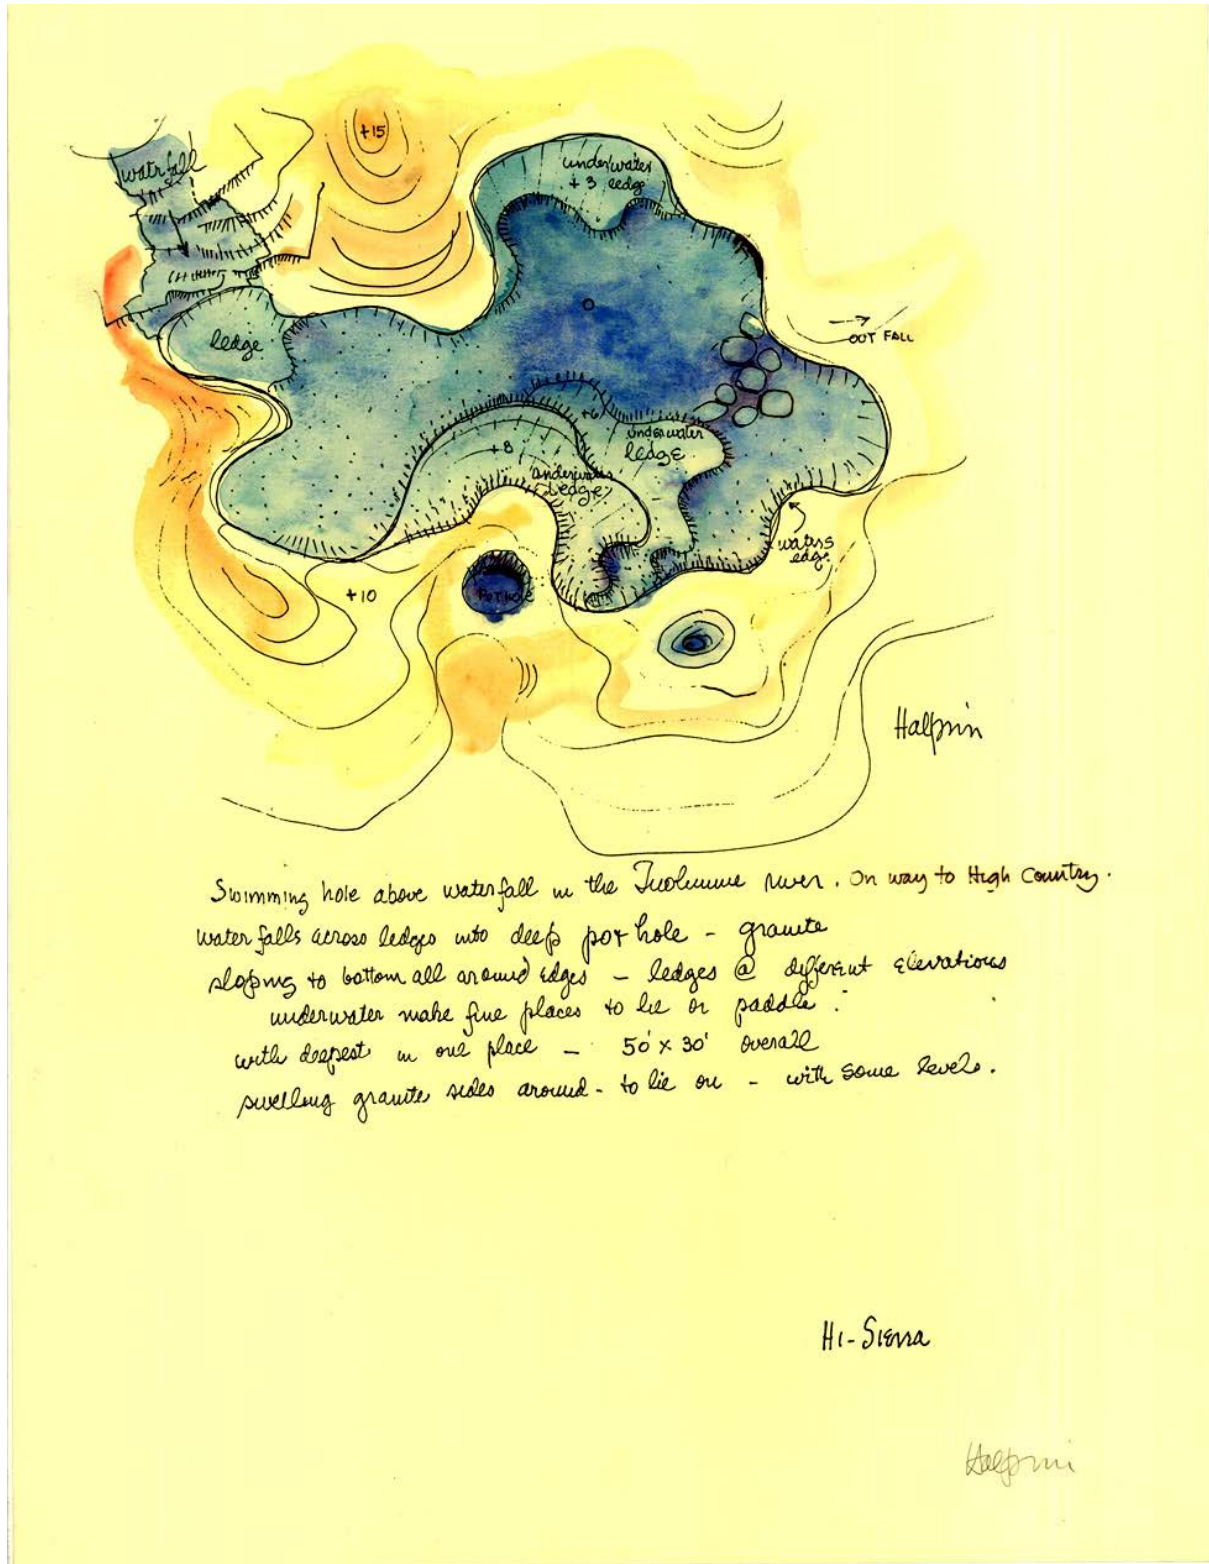 +15
waterfall
underwater
+3 ledge
ledge
O
OUT FALL
+6
underwater
ledge
+8
underwater
ledge
waters
edge
+10
Pothole
Halprin
Swimming hole above waterfall in the Tuolumne river. On way to High Country.
water falls across ledges into deep pot hole - granite
sloping to bottom all around edges - ledges @ different elevations
underwater make fine places to lie or paddle.
with deepest in one place - 50' x 30' overall
swelling granite sides around - to lie on - with some levels.
Hi-Sierra
Halprin